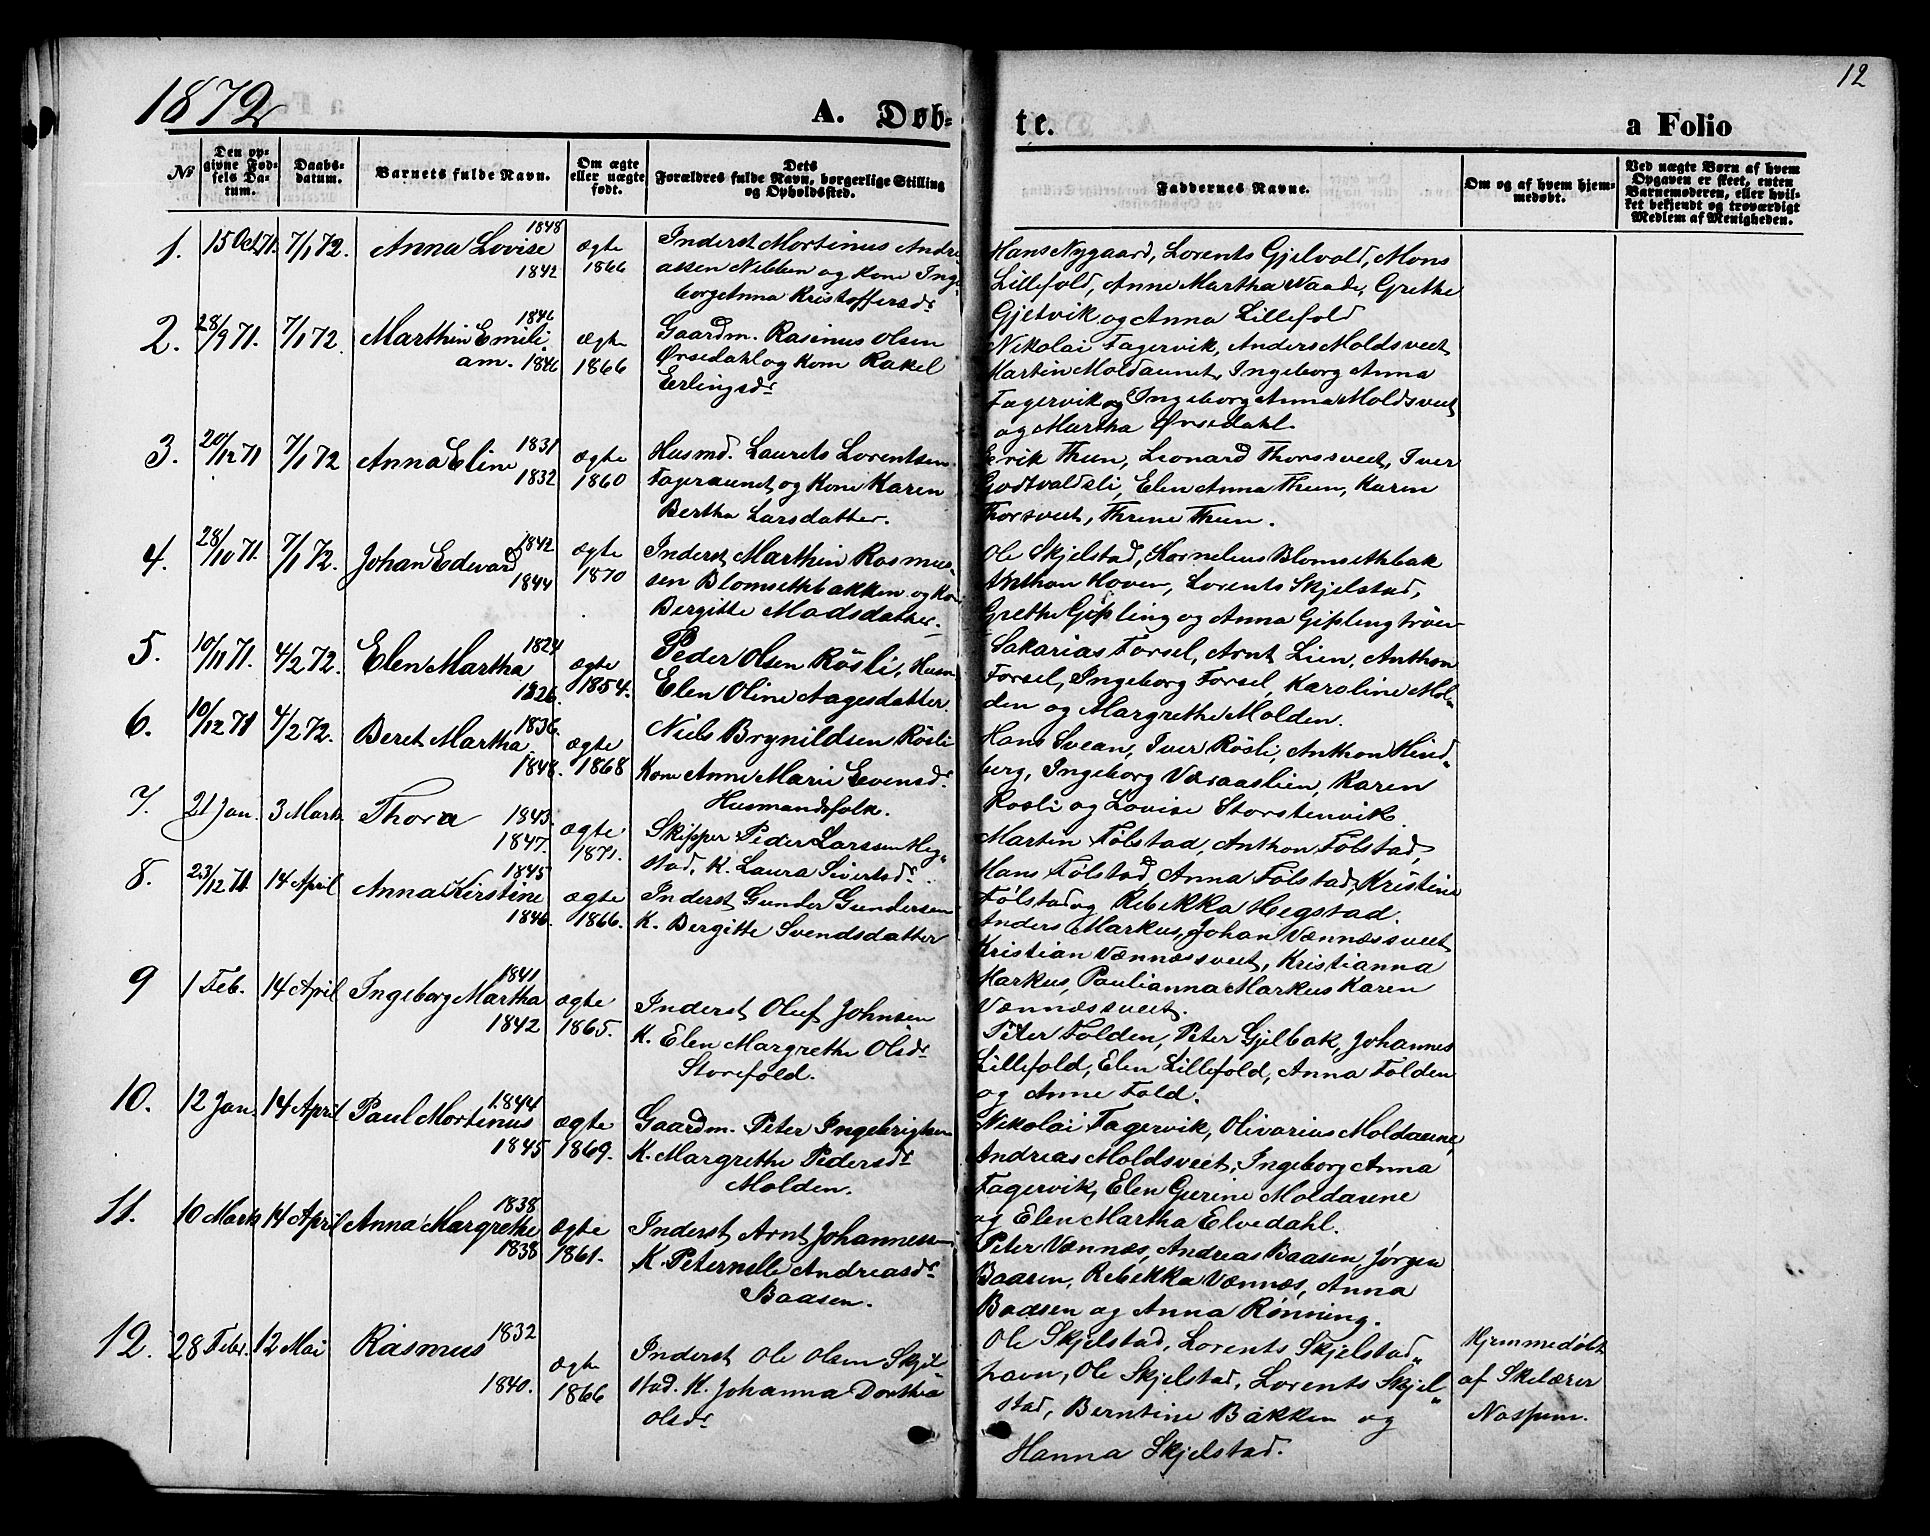 1872
A. Døb-
te.
a Folio
12
No
Den op-
givne Fød-
sels Da-
tum.
Daabs-
datum.
Barnets fulde Navn.
Om ægte
eller uægte
født.
Dets
Forældres fulde Navn, borgerlige Stilling
og Opholdssted.
Faddernes Navne.
Om og af hvem hjem-
medøbt.
Ved uægte Børn af hvem
Opgaven er skeet, enten
Barnemoderen, eller hvil-
ket bekjendt og troværdigt
Medlem af Menigheden.
1. 15 Oct 71. 7/1 72. Anna Lovise 1848 1842 ægte 1866
Inderst Mortinus Andre
assen Nebben og Kone Inge-
borg Anna Kristoffersdr
Hans Nygaard, Lorents Gjelvold, Mons
Lillefold, Anne Martha Vaade, Grethe
Gjelvik og Anna Lillefold
2. 28/9 71. 7/1 72. Marthin Emili
am. 1846 1846 ægte 1866
Gaardm. Rasmus Olsen
Ørsedahl og Kone Rakel
Erlingsdr
Nikolai Fagervik, Anders Moldsveet
Martin Moldaunet, Ingeborg Anna
Fagervik og Ingeborg Anna Moldsveet
og Martha Ørsedahl.
3. 20/12 71 7/1 72 Anna Eline 1831 1832 ægte 1860
Husmd. Laurits Lorentsen
Fageraunet og Kone Karen
Bertha Larsdatter.
Erik Thun, Leonard Thorssveet, Iver
Godtvaldsli, Elen Anna Thun, Karen
Thorsveet, Threne Thun.
4. 28/10 71. 7/1 72. Johan Edvard 1842 1844 ægte 1870
Inderst Marthin Rasmus-
sen Blomsethbakken og Kone
Bergitte Madsdatter.
Ole Skjelstad, Kornelius Blomsethbak
Anthon Hoven, Lorents Skjelstad,
Grethe Gipling og Anna Giplingtrøen
5. 10/11 71. 4/2 72. Elen Martha 1824 1826. ægte 1854.
Peder Olsen Røsli, Husm
Elen Oline Aagesdatter.
Sakarias Forsel, Arnt Lien, Anthon
Forsel, Ingeborg Forsel, Karoline Mol-
den og Margrethe Molden.
6. 10/12 71 4/2 72. Beret Martha 1836. 1848. ægte 1868
Niels Brynildsen Røsli
Kone Anne Marie Evensdr
Husmandsfolk.
Hans Svean, Iver Røsli, Anthon Hind-
berg, Ingeborg Varaaslien, Karen
Røsli og Lovise Storstenvik.
7. 21 Jan. 3 Marts Thora 1843. 1847. ægte 1871.
Skipper Peder Larssen Heg-
stad, K. Laura Sivertsdr.
Martin Følstad, Anthon Følstad,
Hans Følstad, Anna Følstad, Kristine
Følstad og Rebekka Hegstad.
8. 23/12 71. 14 April Anna Kirstine 1845 1846. ægte 1866.
Inderst Gunder Gundersen
K. Bergitte Svendsdatter
Anders Markus, Johan Vennæssveet
Kristian Vennæssveet, Kristianna
Markus, Paulianna Markus Karen
Vennæssveet.
9 1 Feb. 14 April Ingeborg Martha 1841 1842 ægte 1865.
Inderst Oluf Johnsen
K. Elen Margrethe Olsdr
Storefold.
Peter Folden, Peter Gjelbak, Johannes
Lillefold, Elen Lillefold, Anna Folden
og Anne Fold.
10. 12 Jan. 14 April Paul Mortinus 1844 1845 ægte 1869.
Gaardm. Peter Ingebrigtsen
K. Margrethe Pedersdr
Molden.
Nikolai Fagervik, Olivarius Moldaune,
Andreas Moldsveet, Ingeborg Anna
Fagervik, Elen Gurine Moldaune
og Elen Martha Elvedahl.
11. 10 Marts 14 April Anna Margrethe 1838 1838 ægte 1861.
Inderst Arnt Johannesen
K. Peternelle Andreasdr
Baasen.
Peter Vennæs, Andreas Baasen, Jørgen
Baasen, Rebekka Vennæs, Anna
Baasen og Anna Rønning.
12. 28 Febr. 12 Mai Rasmus 1832 1840. ægte 1866
Inderst Ole Olsen Skjel-
stad. K. Johanna Dorthea
Olsdr
Ole Skjelstad, Lorents Skjelstad-
havn, Ole Skjelstad, Lorents Skjel-
stad, Berntine Bakken og
Hanna Skjelstad.
Hjemmedøbt
af Skolelærer